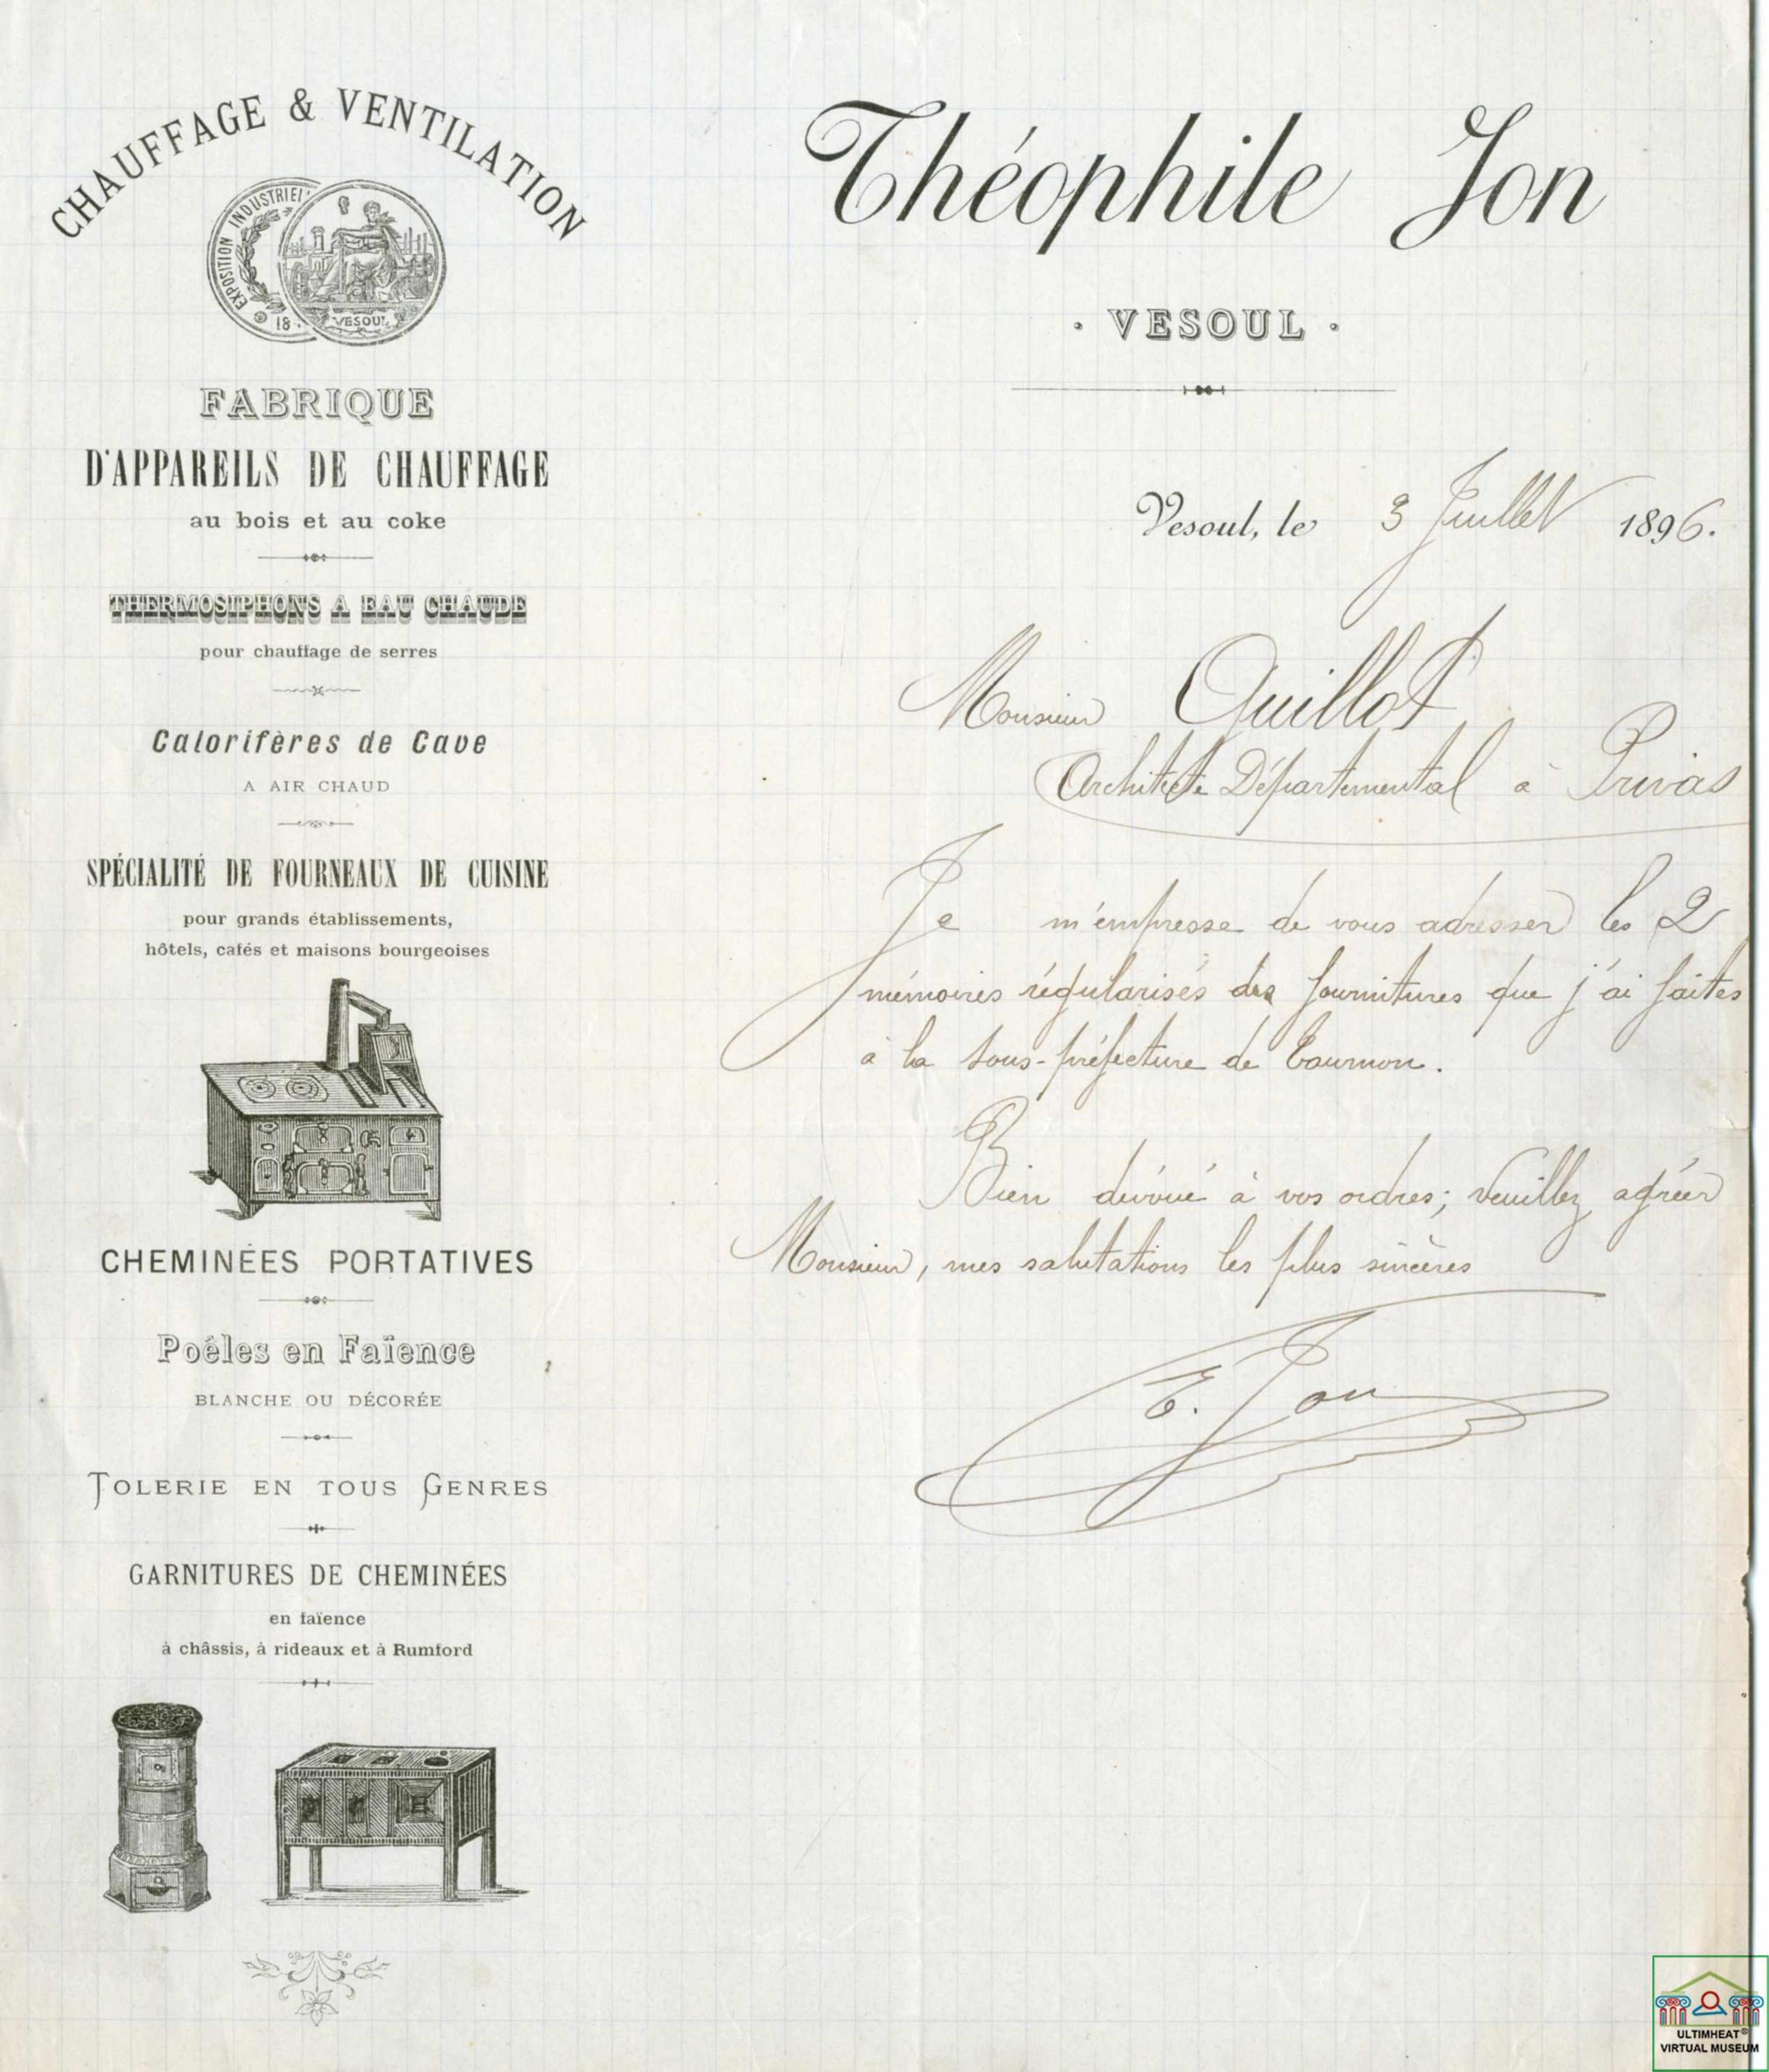 CHAUFFAGE & VENTILATION
EXPOSITION INDUSTRIELLE
18
VESOUL
FABRIQUE
D'APPAREILS DE CHAUFFAGE
au bois et au coke
THERMOSIPHONS A EAU CHAUDE
pour chauffage de serres
Calorifères de Cave
A AIR CHAUD
SPÉCIALITÉ DE FOURNEAUX DE CUISINE
pour grands établissements,
hôtels, cafés et maisons bourgeoises
CHEMINÉES PORTATIVES
Poêles en Faïence
BLANCHE OU DÉCORÉE
TOLERIE EN TOUS GENRES
GARNITURES DE CHEMINÉES
en faïence
à châssis, à rideaux et à Rumford
Théophile Jon
· VESOUL ·
Vesoul, le 3 Juillet 1896.
Monsieur Guillot
Architecte Départemental à Privas
Je m'empresse de vous adresser les 2
mémoires régularisés des fournitures que j'ai faites
à la sous-préfecture de Tournon.
Bien dévoué à vos ordres; veuillez agréer
Monsieur, mes salutations les plus sincères
T. Jon
ULTIMHEAT®
VIRTUAL MUSEUM